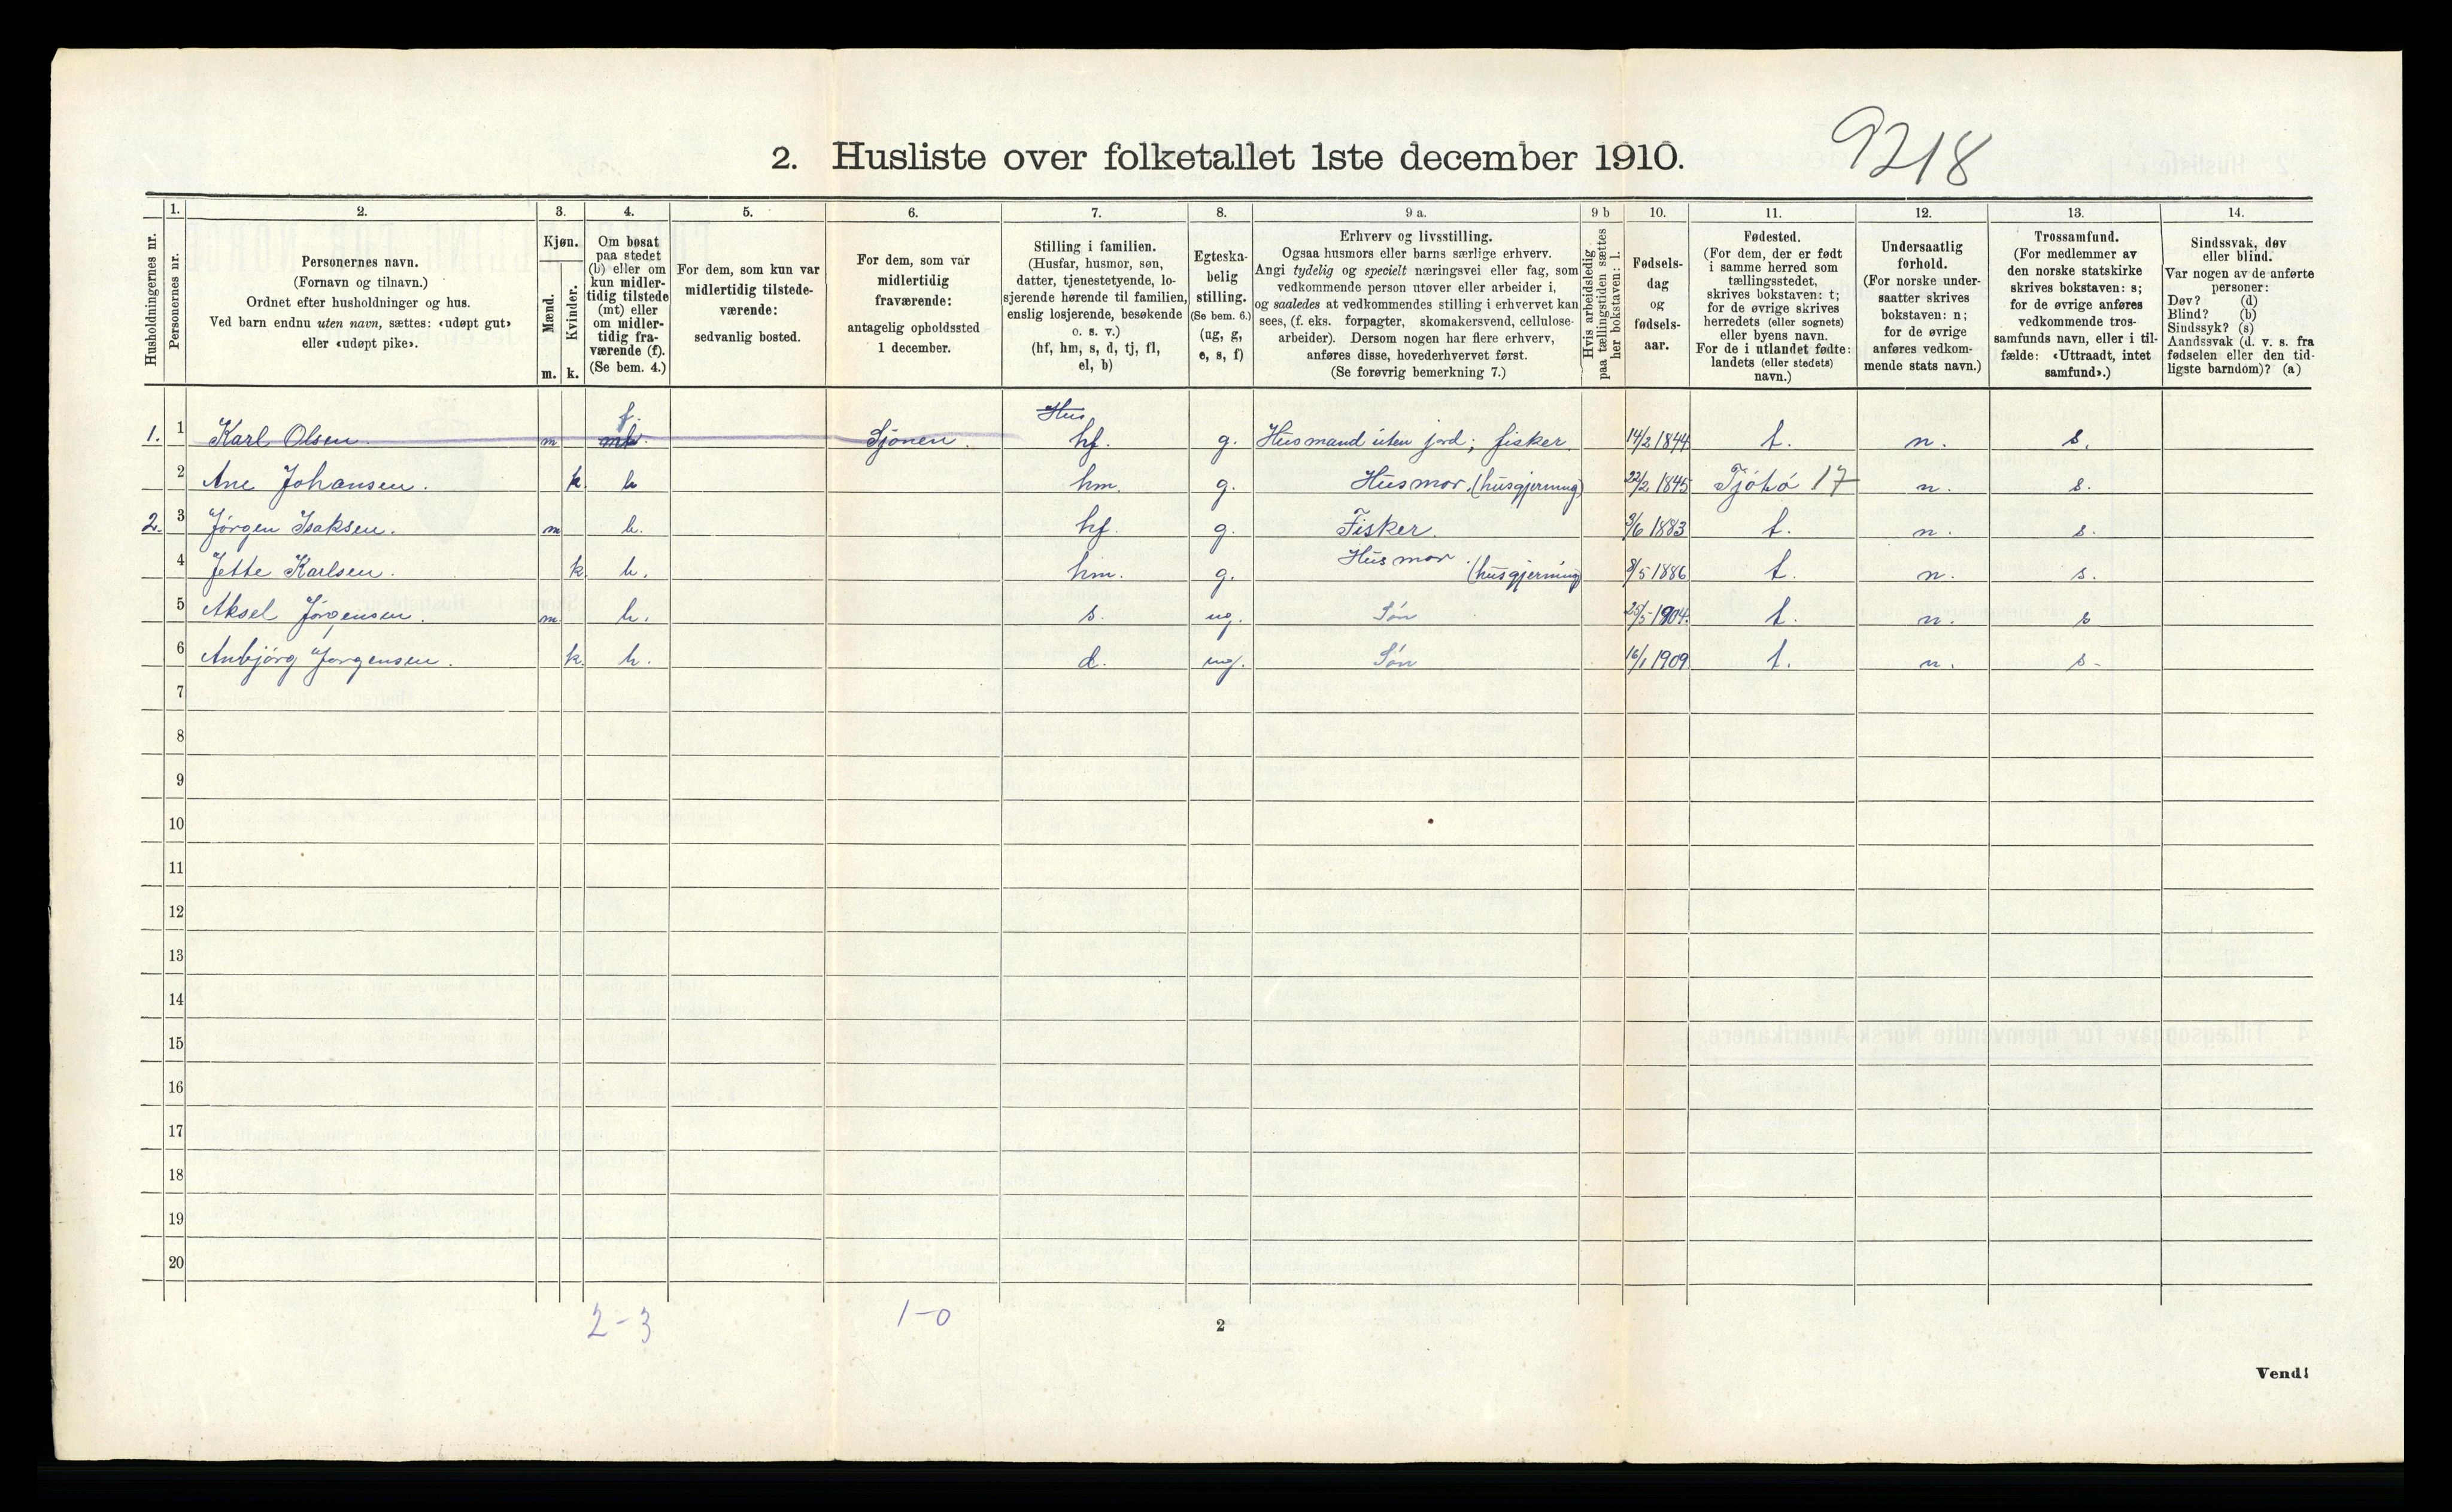 2. Husliste over folketallet 1ste december 1910.
9218
Husholdningernes nr.
1.
Personernes nr.
2.
Personernes navn.
(Fornavn og tilnavn.)
Ordnet efter husholdninger og hus.
Ved barn endnu uten navn, sættes: «udøpt gut»
eller «udøpt pike».
3.
Kjøn.
Mænd.
Kvinder.
m. k.
4.
Om bosat
paa stedet
(b) eller om
kun midler-
tidig tilstede
(mt) eller
om midler-
tidig fra-
værende (f).
(Se bem. 4.)
5.
For dem, som kun var
midlertidig tilstede-
værende:
sedvanlig bosted.
6.
For dem, som var
midlertidig
fraværende:
antagelig opholdssted
1 december.
7.
Stilling i familien.
(Husfar, husmor, søn,
datter, tjenestetyende, lo-
sjerende hørende til familien,
enslig losjerende, besøkende
o. s. v.)
(hf, hm, s, d, tj, fl,
el, b)
8.
Egteska-
belig
stilling.
(Se bem. 6.)
(ug, g,
e, s, f)
9 a.
Erhverv og livsstilling.
Ogsaa husmors eller barns særlige erhverv.
Angi tydelig og specielt næringsvei eller fag, som
vedkommende person utøver eller arbeider i,
og saaledes at vedkommendes stilling i erhvervet kan
sees, (f. eks. forpagter, skomakersvend, cellulose-
arbeider). Dersom nogen har flere erhverv,
anføres disse, hovederhvervet først.
(Se forøvrig bemerkning 7.)
9 b
Hvis arbeidsledig
paa tællingstiden sættes
her bokstaven: l.
10.
Fødsels-
dag
og
fødsels-
aar.
11.
Fødested.
(For dem, der er født
i samme herred som
tællingsstedet,
skrives bokstaven: t;
for de øvrige skrives
herredets (eller sognets)
eller byens navn.
For de i utlandet fødte:
landets (eller stedets)
navn.)
12.
Undersaatlig
forhold.
(For norske under-
saatter skrives
bokstaven: n;
for de øvrige
anføres vedkom-
mende stats navn.)
13.
Trossamfund.
(For medlemmer av
den norske statskirke
skrives bokstaven: s;
for de øvrige anføres
vedkommende tros-
samfunds navn, eller i til-
fælde: «Uttraadt, intet
samfund».)
14.
Sindssvak, døv
eller blind.
Var nogen av de anførte
personer:
Døv? (d)
Blind? (b)
Sindssyk? (s)
Aandssvak (d. v. s. fra
fødselen eller den tid-
ligste barndom)? (a)
1. 1 Karl Olsen. m f. Sjønen. Hus hf. g. Husmand uten jord; fisker. 14/2 1844 t. n. s.
2 Ane Johansen. k. b hm. g. Husmor. (husgjerning) 22/2 1845 Tjøtø 17 n. s.
2. 3 Jørgen Isaksen. m b. hf. g. Fisker. 9/6 1883 t. n. s.
4 Jette Karlsen. k b. hm. g. Husmor. (husgjerning) 8/5 1886 t. n. s.
5 Aksel Jørgensen. m. b. s. ug. Søn 25/5 1904. t. n. s
6 Anbjørg Jørgensen. k. b. d. ug. Søn 16/1 1909 t. n. s.
7
8
9
10
11
12
13
14
15
16
17
18
19
20
2-3 1-0
2
Vend!